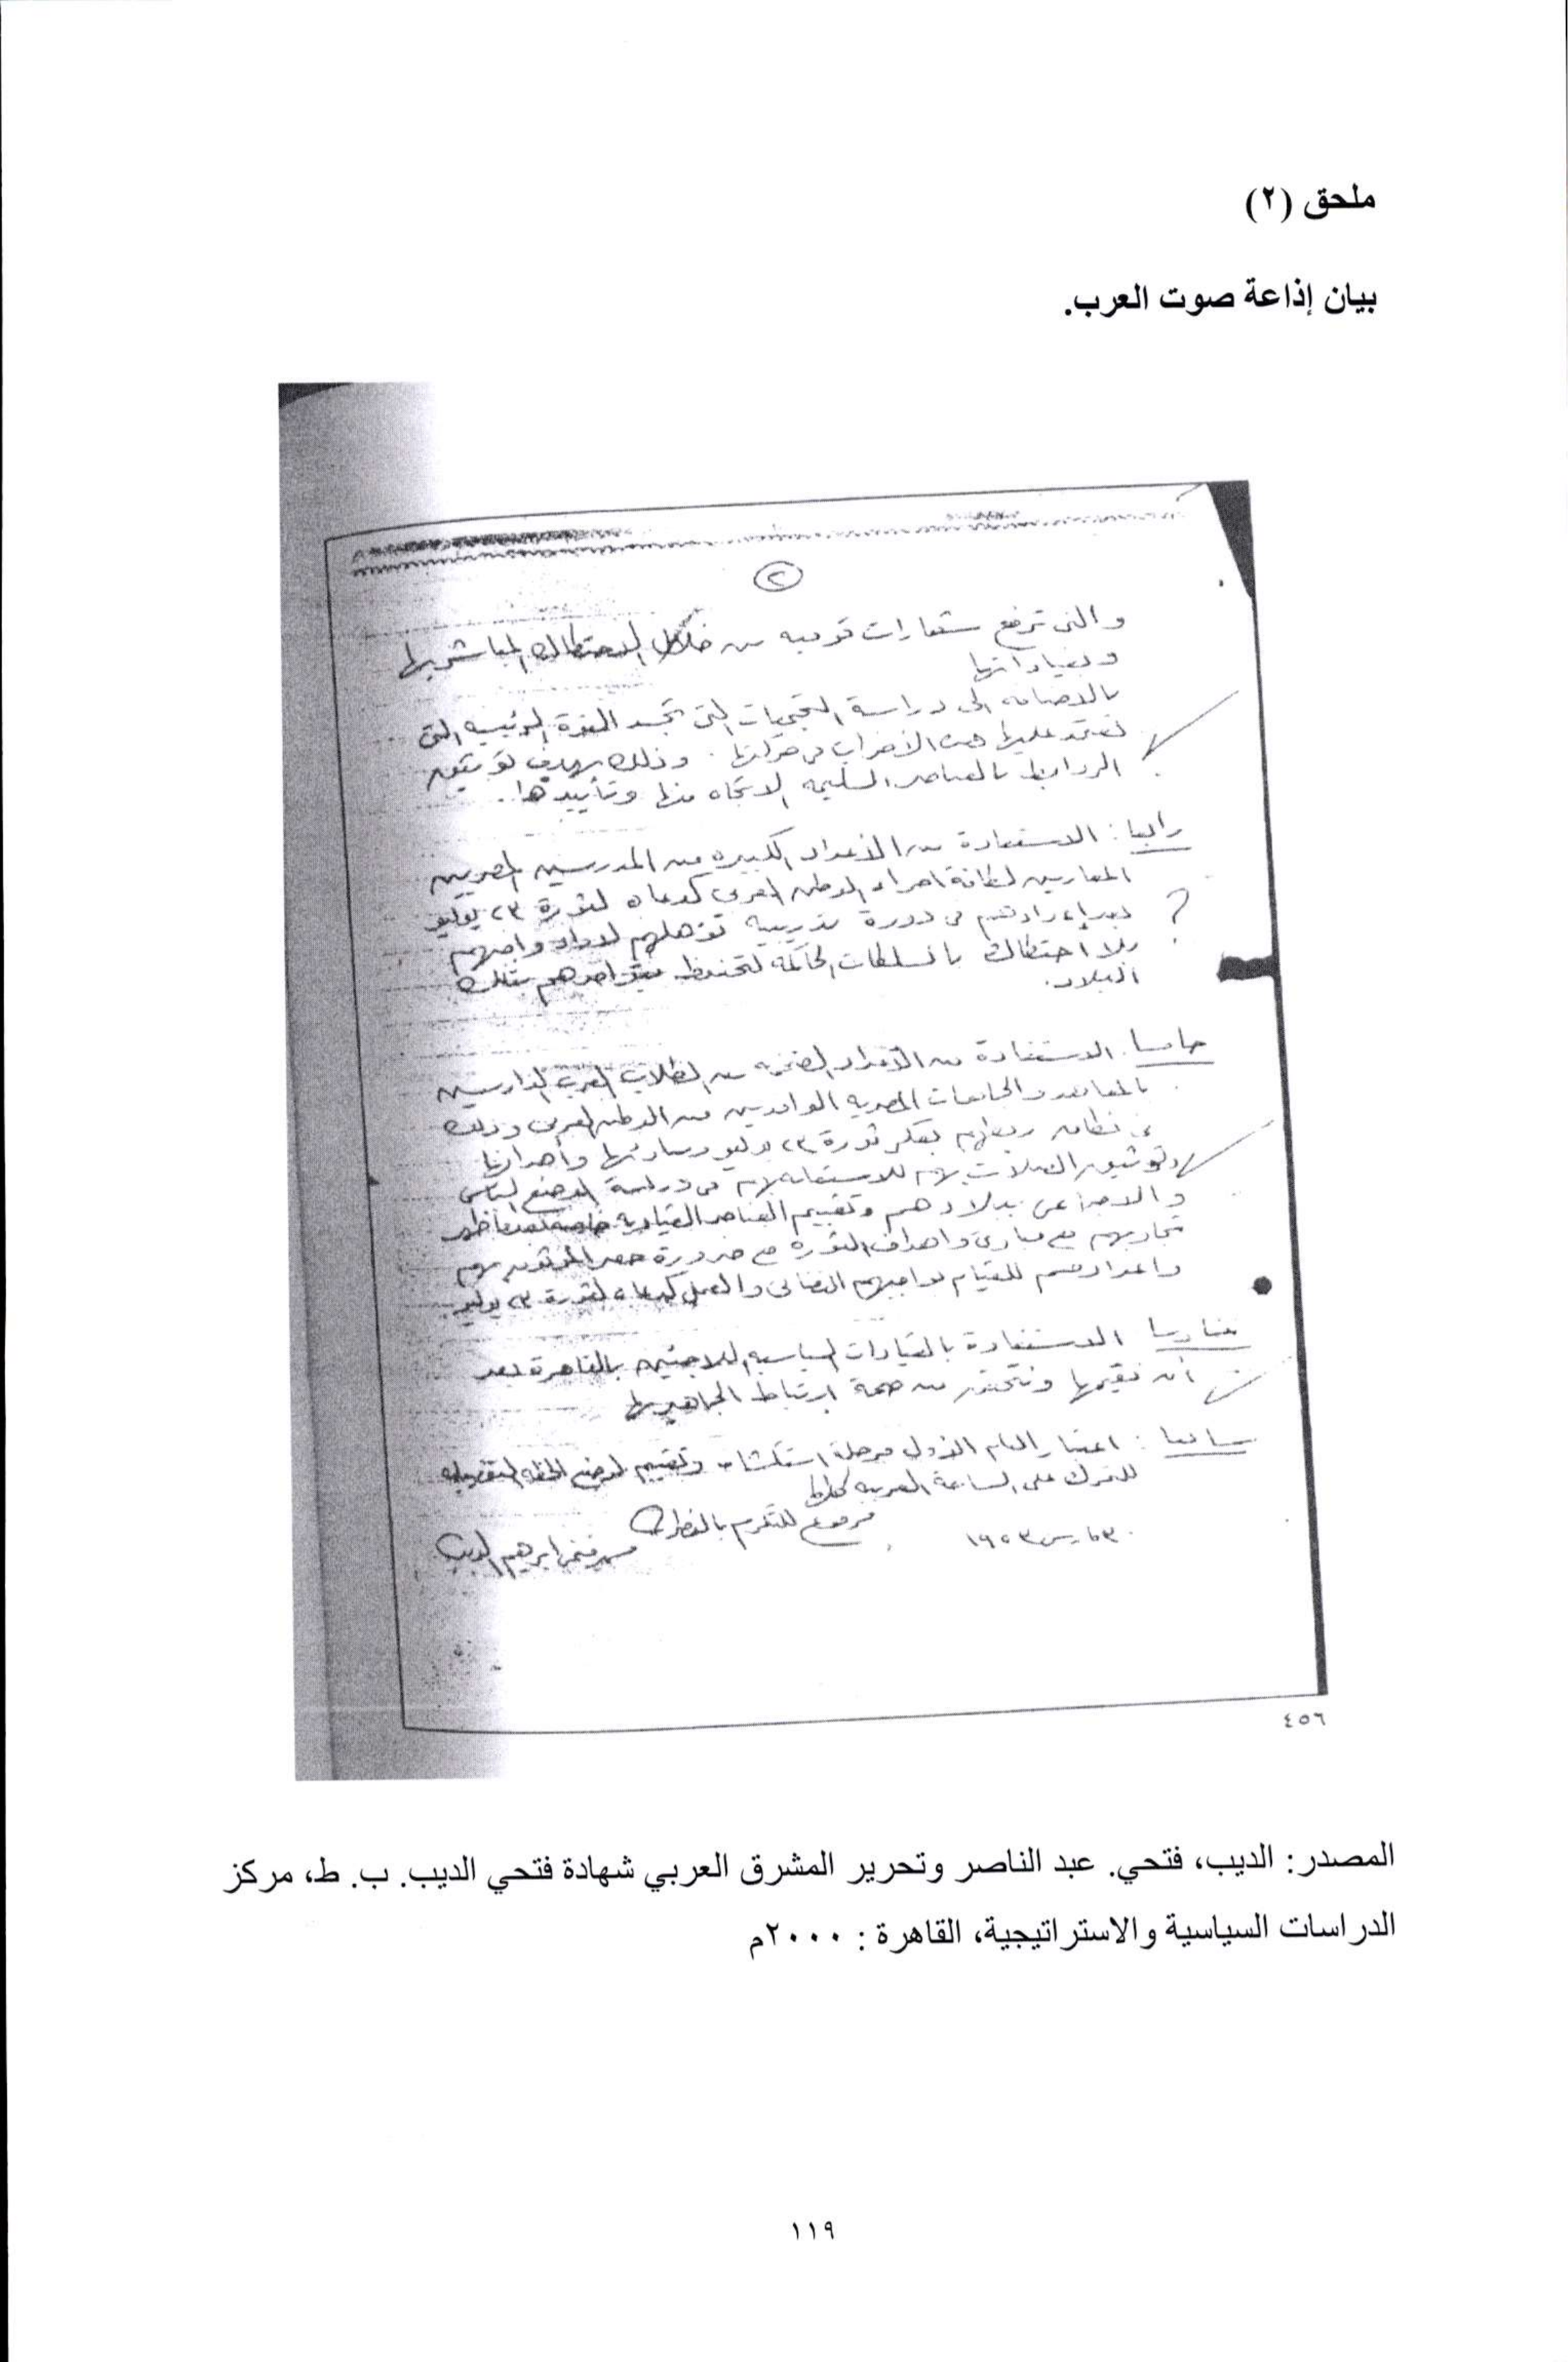 ملحق (٢)
بيان إذاعة صوت العرب.
٢
والتى ترفع شعارات قوميه من خلال الاحتكاك المباشر بها
وبقياداتها
بالاضافه الى دراسة التجمعات التى تجسد القوة الرئيسيه التى
تعتمد عليها هذه الأحزاب فى حركتها. وذلك بهدف توثيق
الروابط بالعناصر السليمه الاتجاه منها وتأييدها.
رابعا: الاستفادة من الأعداد الكبيره من المدرسين المصريين
المعارين لكافة اجزاء الوطن العربى كدعاه لثورة ٢٣ يوليو
بعد إعدادهم فى دورة تدريبيه تؤهلهم لاداء واجبهم
بلا احتكاك بالسلطات الحاكمه لنحتفظ بتواجدهم بتلك
البلاد.
خامسا. الاستفادة من الأعداد الضخمه من الطلاب العرب الدارسين
بالمعاهد والجامعات المصريه الوافدين من الوطن العربى وذلك
فى نطاق ربطهم بفكر ثورة ٢٣ يوليو ومبادئها واهدافها
وتوثيق الصلات بهم للاستعانه بهم فى دراسة الوضع السياسى
والاجتماعى ببلادهم وتقييم العناصر القياديه خاصة
تجاوبهم مع مبادئ واهداف الثوره مع ضرورة حصر الموثوق بهم
واعدادهم للقيام بواجبهم النضالى والعمل كدعاه لثورة ٢٣ يوليو
سادسا الاستفادة بالقيادات السياسيه اللاجئين بالقاهرة بعد
أن نقيمها ونتحقق من صحة ارتباط الجماهير بها
سابعا: اعتبار العام الأول مرحلة استكشاف وتقييم لوضع الخطه
للتحرك على الساحة العربيه ككل
مرفوع للتكرم بالنظر
مارس ١٩٥٣
محمد فتحى ابراهيم الديب
٤٥٦
المصدر: الديب، فتحي. عبد الناصر وتحرير المشرق العربي شهادة فتحي الديب. ب. ط، مركز
الدراسات السياسية والاستراتيجية، القاهرة : ٢٠٠٠م
١١٩